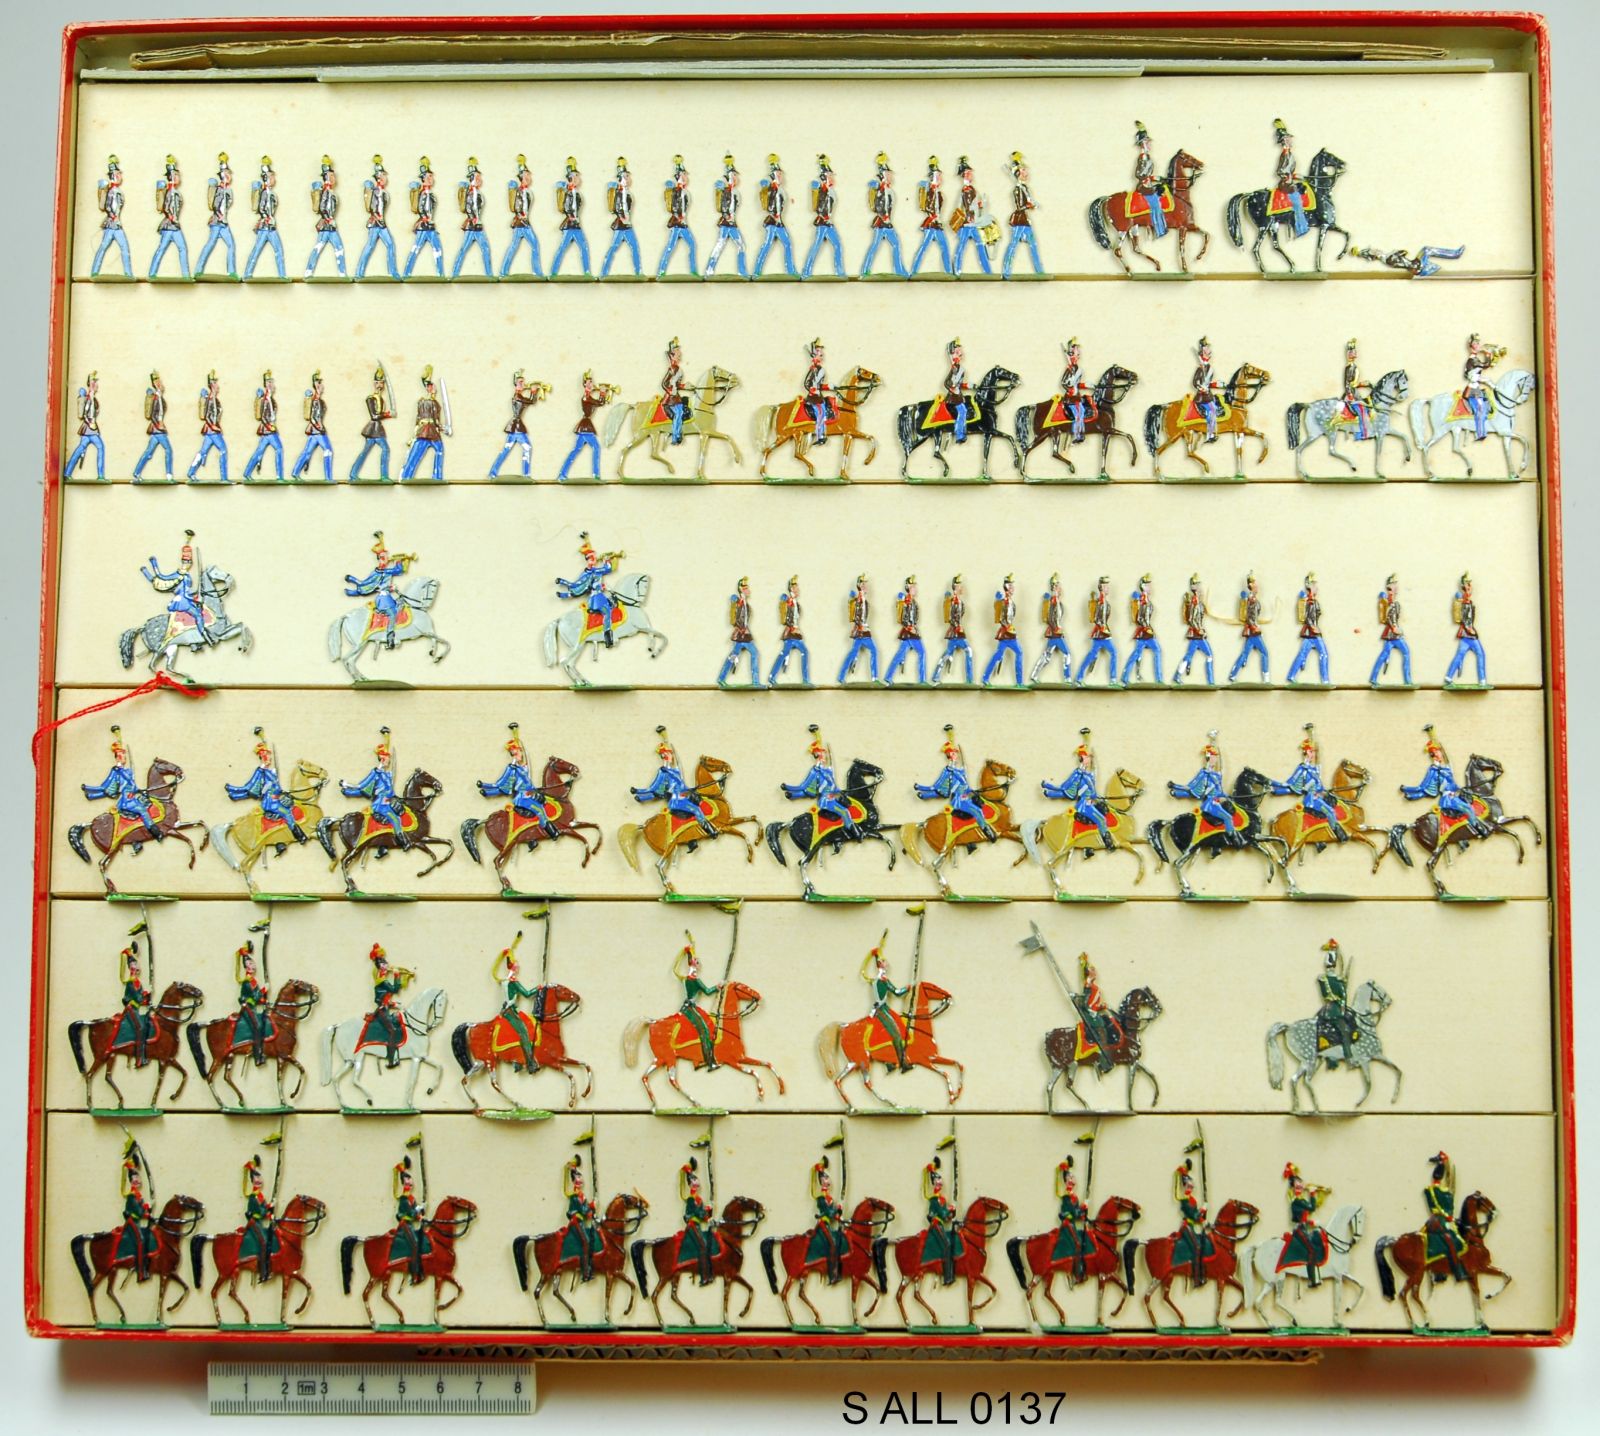 1 2 1m 3 4 5 6 7 8
S ALL 0137